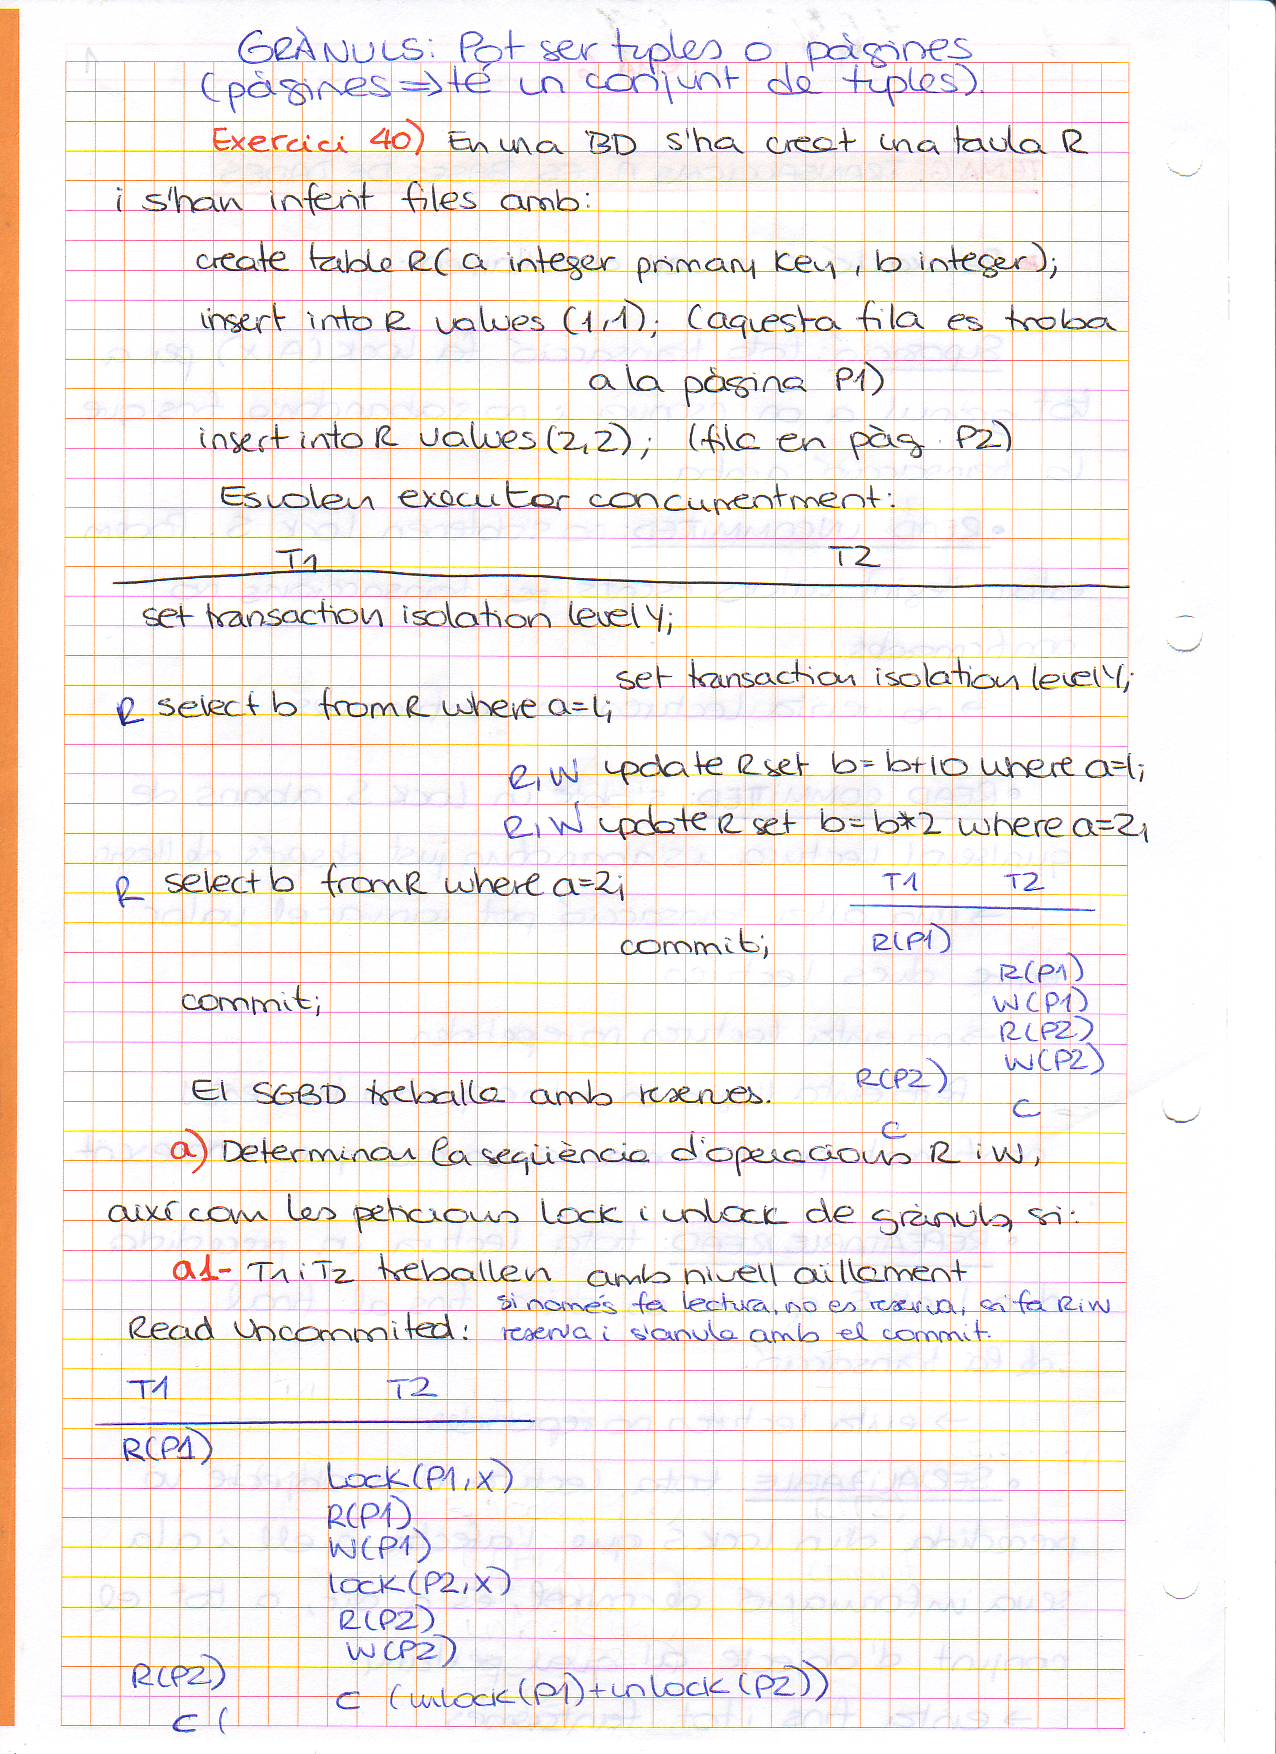 GRÀNULS: Pot ser tuples o pàgines
(pàgines => té un conjunt de tuples).
Exercici 40) En una BD s'ha creat una taula R
i s'han inferit files amb:
create table R( a integer primary key, b integer);
insert into R values (1,1); (aquesta fila es troba
a la pàgina P1)
insert into R values (2,2); (fila en pàg. P2)
Es volen executar concurrentment:
T1 T2
set transaction isolation level Y;
set transaction isolation level Y;
R select b from R where a=1;
R,W update R set b=b+10 where a=1;
R,W update R set b=b*2 where a=2;
R select b from R where a=2;
commit;
commit;
T1 T2
R(P1)
R(P1)
W(P1)
R(P2)
W(P2)
R(P2)
C
C
El SGBD treballa amb reserves.
a) Determinar la seqüència d'operacions R i W,
així com les peticions lock i unlock de grànuls, si:
a1- T1 i T2 treballen amb nivell aïllament
Read Uncommited: si només fa lectura, no es reserva, si fa R i W
reserva i s'anula amb el commit.
T1 T2
R(P1)
Lock(P1,X)
R(P1)
W(P1)
lock(P2,X)
R(P2)
W(P2)
R(P2)
C (unlock(P1)+unlock(P2))
C (